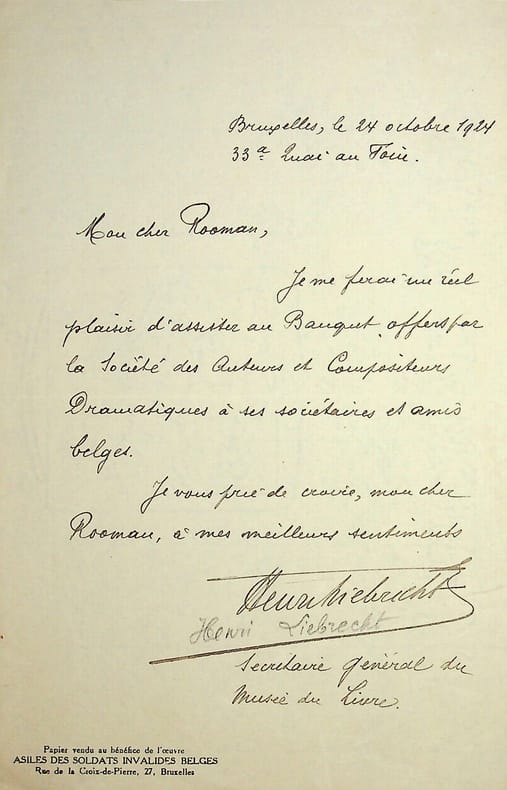 Bruxelles, le 24 octobre 1924
33a Quai au Foin.
Mon cher Rooman,
Je me ferai un réel
plaisir d'assister au Banquet offert par
la Société des Auteurs et Compositeurs
Dramatiques à ses sociétaires et amis
belges.
Je vous prie de croire, mon cher
Rooman, à mes meilleurs sentiments
Henri Liebrecht
Henri Liebrecht
Secrétaire général du
Musée du Livre.
Papier vendu au bénéfice de l'œuvre
ASILES DES SOLDATS INVALIDES BELGES
Rue de la Croix-de-Pierre, 27, Bruxelles